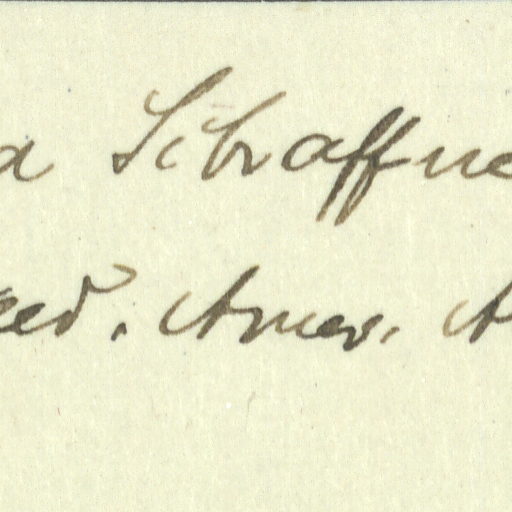 a Schaffne
eed. Amer. A